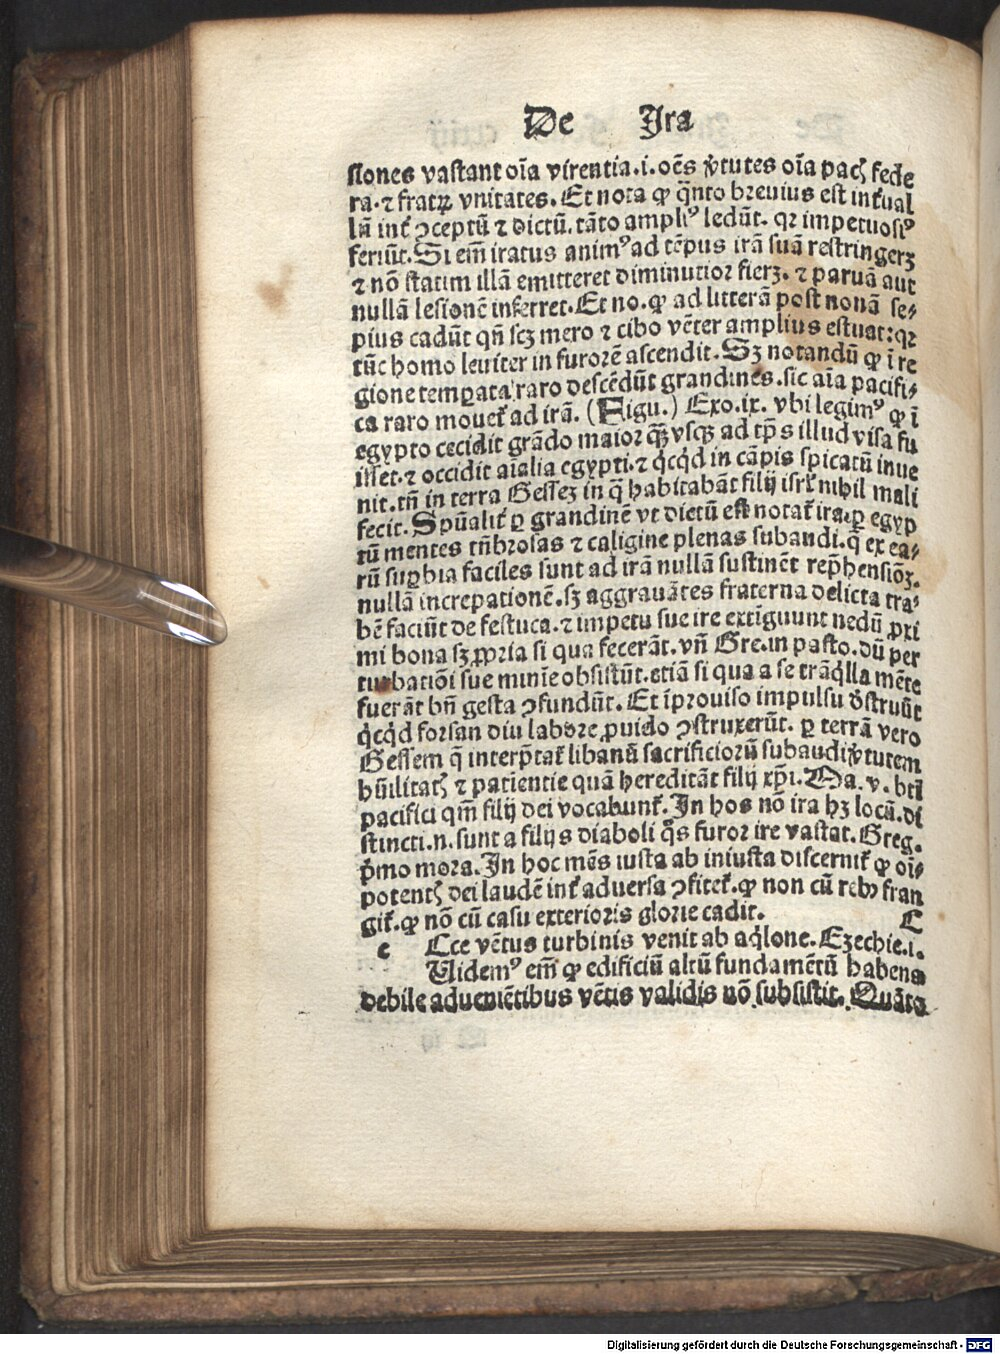 De Ira
siones vastant oīa virentia.i.oēs v̓tutes oīa pacꝭ fede
ra.⁊ fratꝝ vnitates. Et nota ꝙ q̄nto breuius est int̓ual
lū int̓ ꝯceptū ⁊ dictū. tāto ampliꝰ ledūt. qꝛ impetuosiꝰ
feriūt. Si em̄ iratus animꝰ ad tēpus irā suā restringerꝫ
⁊ nō statim illā emitteret diminutior fierꝫ. ⁊ paruā aut
nullā lesionē inferret. Et no. ꝙ ad litterā post nonā se⸗
pius cadūt qn̄ scꝫ mero ⁊ cibo vēter amplius estuat: qꝛ
tūc homo leuiter in furorē ascendit. Sꝫ notandū ꝙ ī re
gione temꝑata raro descēdūt grandines. sic aīa pacifi⸗
ca raro mouet̓ ad irā. (Figu.) Exo.ix. vbi legimꝰ ꝙ ī
egypto cecidit grādo maior qꝫ̄ vsqꝫ ad tp̄s illud visa fu
isset. ⁊ occidit aīalia egypti. ⁊ q̇cq̇d in cāpis spicatū inue
nit. tn̄ in terra Gesseꝫ in q̄ habitabāt filij isrl̓ nihil mali
fecit. Spūalit̓ ꝑ grandinē vt dictū est notat̓ ira. ꝑ egyp
tū mentes tn̄brosas ⁊ caligine plenas subandi. q̄ ex ea⸗
rū suꝑbia faciles sunt ad irā nullā sustinēt rep̄hensiōꝫ.
nullā increpationē. sꝫ aggrauātes fraterna delicta tra⸗
bē faciūt de festuca. ⁊ impetu sue ire extīguunt nedū ꝓxi
mi bona sꝫ ꝓpria si qua fecerāt. vn̄ Gre. in pasto. dū per
turbatiōi sue minīe obsistūt. etiā si qua a se trāq̇lla mēte
fuerāt bn̄ gesta ꝯfundūt. Et īprouiso impulsu d̓struūt
q̇cq̇d forsan diu labore ꝓuido ꝯstruxerūt. ꝑ terrā vero
Gessem q̄ interp̄tat̓ libanū sacrificiorū subaudi v̓tutem
hūilitatꝭ ⁊ patientie quā hereditāt filij xp̄i. Ma. v. bti̓
pacifici qm̄ filij dei vocabunt̓. In hos nō ira hꝫ locū. di
stincti.n. sunt a filijs diaboli q̊s furor ire vastat. Greg.
p̄mo mora. In hoc mēs iusta ab iniusta discernit̓ ꝙ oī⸗
potentꝭ dei laudē int̓ aduersa ꝯfitet̓. ꝙ non cū rebꝰ fran
git̓. ꝙ nō cū casu exterioris glorie cadit. C
e Cce vētus turbinis venit ab aq̇lone. Ezechie.i.
Uidemꝰ em̄ ꝙ edificiū altū fundamētū habens
debile aduenietībus vētis validis nō subsistit. Quāto
Digitalisierung gefördert durch die Deutsche Forschungsgemeinschaft - DFG